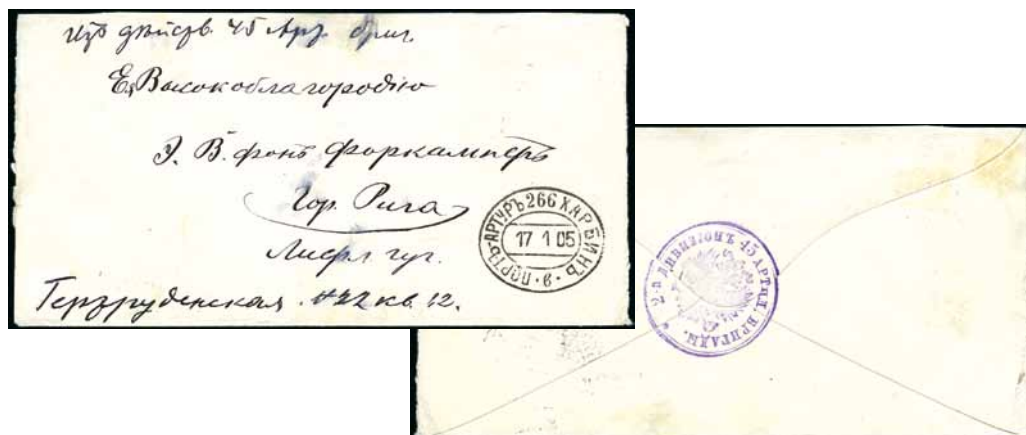 Изъ дѣйств. 45 Арт. бриг.
Е. Высокоблагородію
Э. В. фонъ Форкампфъ
Гор. Рига
Лифл. губ.
Гертруденская № 22 кв. 12.
ПОРТЪ-АРТУРЪ 266 ХАРБИНЪ
17 1 05
·в·
2-й ДИВИЗІОНЪ 45 АРТИЛ. БРИГАДЫ.